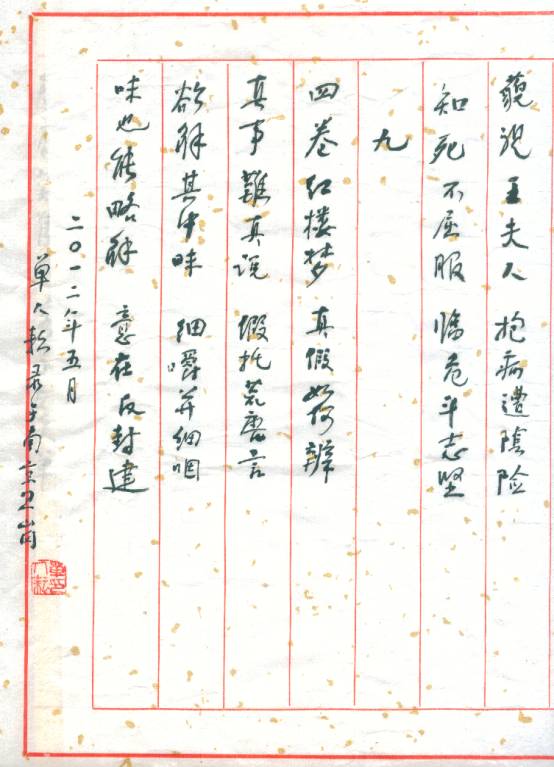 藐视王夫人 抱病遭陰险
知死不屈服 临危斗志坚
九
四卷红楼梦 真假如何辨
真事難真说 假托荒唐言
欲解其中味 细嚼并细咽
味也能略解 意在反封建
二〇一二年五月
单人耘录于南京卫岗